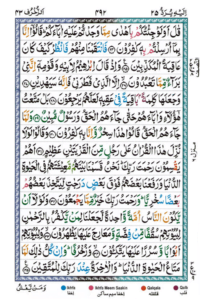 اِلَيْهِ يُرَدُّ ٢٥ ٤٩٢ اَلزُّخْرُف ٤٣
قٰلَ اَوَلَوْ جِئْتُكُمْ بِاَهْدٰى مِمَّا وَجَدْتُّمْ عَلَيْهِ اٰبَآءَكُمْ ؕ قَالُوْۤا اِنَّا
بِمَاۤ اُرْسِلْتُمْ بِهٖ كٰفِرُوْنَ ۝ فَانْتَقَمْنَا مِنْهُمْ فَانْظُرْ كَيْفَ كَانَ
عَاقِبَةُ الْمُكَذِّبِيْنَ ۝ وَاِذْ قَالَ اِبْرٰهِيْمُ لِاَبِيْهِ وَقَوْمِهٖۤ اِنَّنِيْ
بَرَآءٌ مِّمَّا تَعْبُدُوْنَ ۝ اِلَّا الَّذِيْ فَطَرَنِيْ فَاِنَّهٗ سَيَهْدِيْنِ ۝
وَجَعَلَهَا كَلِمَةًۢ بَاقِيَةً فِيْ عَقِبِهٖ لَعَلَّهُمْ يَرْجِعُوْنَ ۝ بَلْ مَتَّعْتُ
هٰۤؤُلَآءِ وَاٰبَآءَهُمْ حَتّٰى جَآءَهُمُ الْحَقُّ وَرَسُوْلٌ مُّبِيْنٌ ۝ وَلَمَّا
جَآءَهُمُ الْحَقُّ قَالُوْا هٰذَا سِحْرٌ وَّاِنَّا بِهٖ كٰفِرُوْنَ ۝ وَقَالُوْا لَوْلَا
نُزِّلَ هٰذَا الْقُرْاٰنُ عَلٰى رَجُلٍ مِّنَ الْقَرْيَتَيْنِ عَظِيْمٍ ۝ اَهُمْ
يَقْسِمُوْنَ رَحْمَتَ رَبِّكَ ؕ نَحْنُ قَسَمْنَا بَيْنَهُمْ مَّعِيْشَتَهُمْ فِى الْحَيٰوةِ
الدُّنْيَا وَرَفَعْنَا بَعْضَهُمْ فَوْقَ بَعْضٍ دَرَجٰتٍ لِّيَتَّخِذَ بَعْضُهُمْ
بَعْضًا سُخْرِيًّا ؕ وَرَحْمَتُ رَبِّكَ خَيْرٌ مِّمَّا يَجْمَعُوْنَ ۝ وَلَوْلَاۤ اَنْ
يَّكُوْنَ النَّاسُ اُمَّةً وَّاحِدَةً لَّجَعَلْنَا لِمَنْ يَّكْفُرُ بِالرَّحْمٰنِ
لِبُيُوْتِهِمْ سُقُفًا مِّنْ فِضَّةٍ وَّمَعَارِجَ عَلَيْهَا يَظْهَرُوْنَ ۝ وَلِبُيُوْتِهِمْ
اَبْوَابًا وَّسُرُرًا عَلَيْهَا يَتَّكِـُٔوْنَ ۝ وَزُخْرُفًا ؕ وَاِنْ كُلُّ ذٰلِكَ لَمَّا
مَتَاعُ الْحَيٰوةِ الدُّنْيَا ؕ وَالْاٰخِرَةُ عِنْدَ رَبِّكَ لِلْمُتَّقِيْنَ ۝
Ikhfa Ikhfa Meem Saakin Qalqala